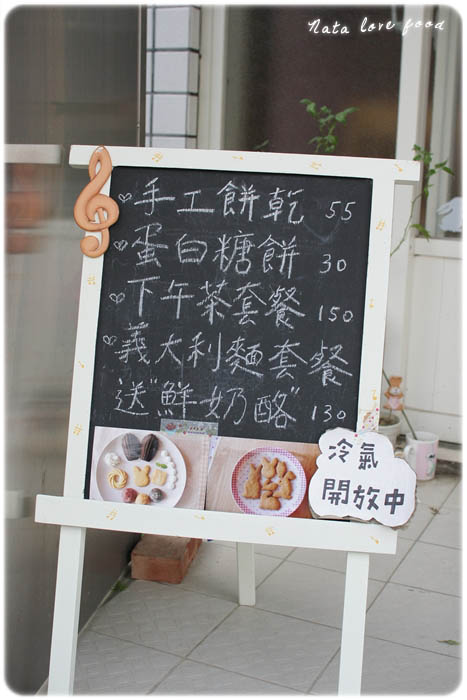 Nata love food
手工餅乾 55
蛋白糖餅 30
下午茶套餐 150
義大利麵套餐
送"鮮奶酪" 130
冷氣
開放中